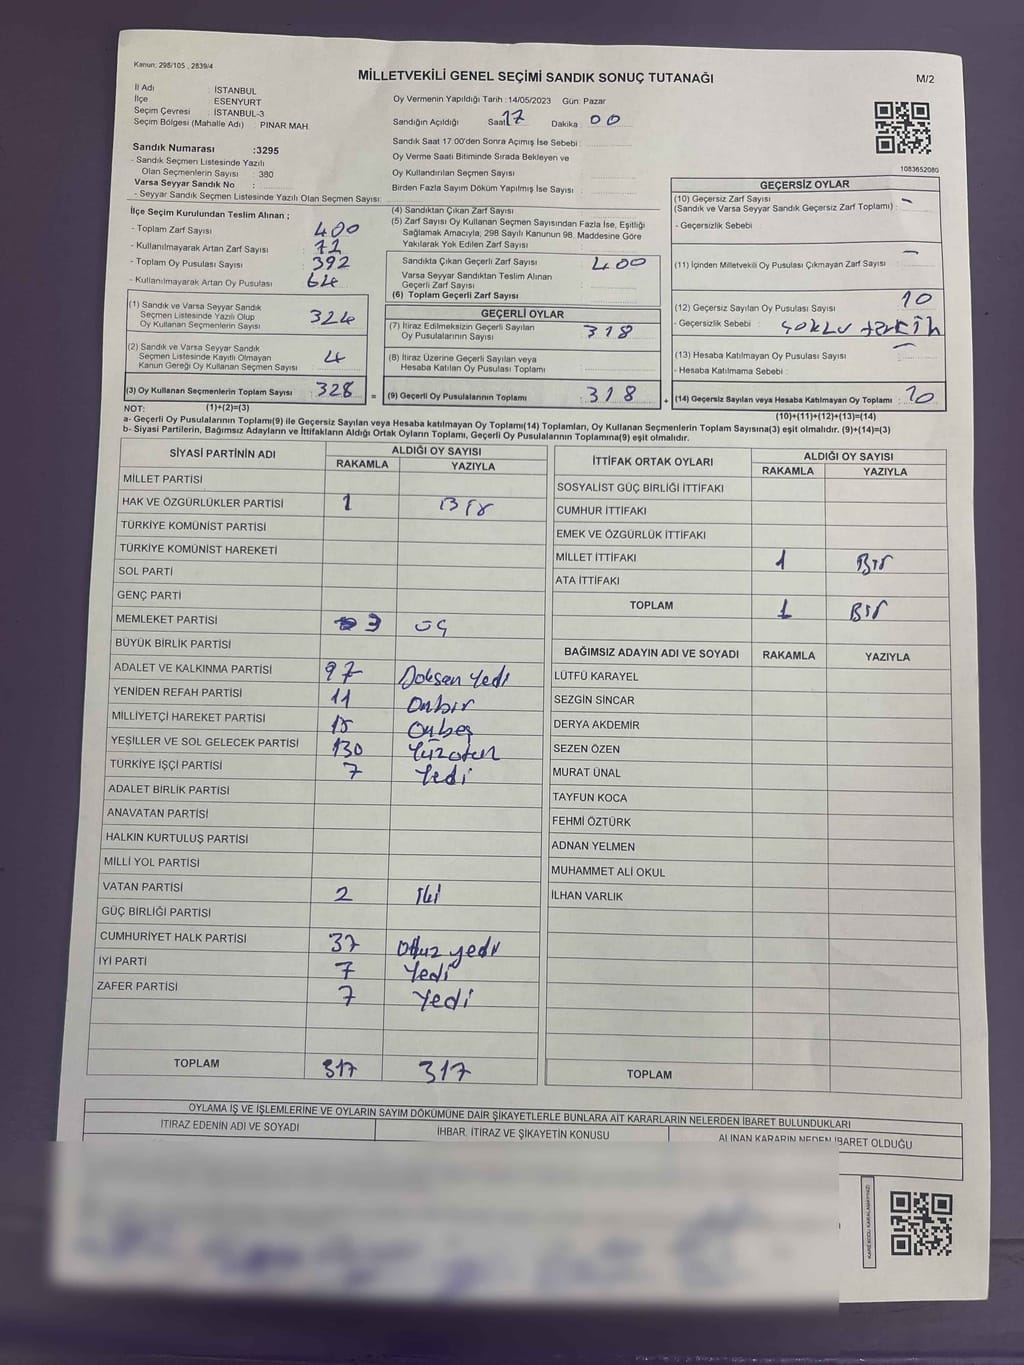 Kanun: 298/105 , 2839/4
MİLLETVEKİLİ GENEL SEÇİMİ SANDIK SONUÇ TUTANAĞI
M/2
İl Adı : İSTANBUL
İlçe ESENYURT
Seçim Çevresi : İSTANBUL-3
Seçim Bölgesi (Mahalle Adı) : PINAR MAH
Oy Vermenin Yapıldığı Tarih :14/05/2023 Gün: Pazar
Sandığın Açıldığı Saat 17 Dakika 00
Sandık Saat 17:00'den Sonra Açımış İse Sebebi :
Oy Verme Saati Bitiminde Sırada Bekleyen ve
Oy Kullandırılan Seçmen Sayısı
Birden Fazla Sayım Döküm Yapılmış İse Sayısı :
1083652080
Sandık Numarası :3295
- Sandık Seçmen Listesinde Yazılı
Olan Seçmenlerin Sayısı : 380
Varsa Seyyar Sandık No :
- Seyyar Sandık Seçmen Listesinde Yazılı Olan Seçmen Sayısı:
İlçe Seçim Kurulundan Teslim Alınan ;
- Toplam Zarf Sayısı 400
- Kullanılmayarak Artan Zarf Sayısı 72
- Toplam Oy Pusulası Sayısı 392
- Kullanılmayarak Artan Oy Pusulası 64
(1) Sandık ve Varsa Seyyar Sandık
Seçmen Listesinde Yazılı Olup
Oy Kullanan Seçmenlerin Sayısı 324
(2) Sandık ve Varsa Seyyar Sandık
Seçmen Listesinde Kayıtlı Olmayan
Kanun Gereği Oy Kullanan Seçmen Sayısı 4
(3) Oy Kullanan Seçmenlerin Toplam Sayısı : 328 =
(1)+(2)=(3)
(4) Sandıktan Çıkan Zarf Sayısı
(5) Zarf Sayısı Oy Kullanan Seçmen Sayısından Fazla İse, Eşitliği
Sağlamak Amacıyla; 298 Sayılı Kanunun 98. Maddesine Göre
Yakılarak Yok Edilen Zarf Sayısı :
Sandıkta Çıkan Geçerli Zarf Sayısı 400
Varsa Seyyar Sandıktan Teslim Alınan
Geçerli Zarf Sayısı
(6) Toplam Geçerli Zarf Sayısı
GEÇERLİ OYLAR
(7) İtiraz Edilmeksizin Geçerli Sayılan
Oy Pusulalarının Sayısı 318
(8) İtiraz Üzerine Geçerli Sayılan veya
Hesaba Katılan Oy Pusulası Toplamı
(9) Geçerli Oy Pusulalarının Toplamı : 318 +
GEÇERSİZ OYLAR
(10) Geçersiz Zarf Sayısı
(Sandık ve Varsa Seyyar Sandık Geçersiz Zarf Toplamı) : -
- Geçersizlik Sebebi
(11) İçinden Milletvekili Oy Pusulası Çıkmayan Zarf Sayısı : -
(12) Geçersiz Sayılan Oy Pusulası Sayısı 10
- Geçersizlik Sebebi : çoklu tercih
(13) Hesaba Katılmayan Oy Pusulası Sayısı : -
- Hesaba Katılmama Sebebi :
(14) Geçersiz Sayılan veya Hesaba Katılmayan Oy Toplamı : 10
(10)+(11)+(12)+(13)=(14)
NOT:
a- Geçerli Oy Pusulalarının Toplamı(9) ile Geçersiz Sayılan veya Hesaba katılmayan Oy Toplamı(14) Toplamları, Oy Kullanan Seçmenlerin Toplam Sayısına(3) eşit olmalıdır. (9)+(14)=(3)
b- Siyasi Partilerin, Bağımsız Adayların ve İttifakların Aldığı Ortak Oyların Toplamı, Geçerli Oy Pusulalarının Toplamına(9) eşit olmalıdır.
SİYASİ PARTİNİN ADI ALDIĞI OY SAYISI
RAKAMLA YAZIYLA
MİLLET PARTİSİ
HAK VE ÖZGÜRLÜKLER PARTİSİ 1 Bir
TÜRKİYE KOMÜNİST PARTİSİ
TÜRKİYE KOMÜNİST HAREKETİ
SOL PARTİ
GENÇ PARTİ
MEMLEKET PARTİSİ 3 üç
BÜYÜK BİRLİK PARTİSİ
ADALET VE KALKINMA PARTİSİ 97 Doksan Yedi
YENİDEN REFAH PARTİSİ 11 Onbir
MİLLİYETÇİ HAREKET PARTİSİ 15 Onbeş
YEŞİLLER VE SOL GELECEK PARTİSİ 130 Yüzotuz
TÜRKİYE İŞÇİ PARTİSİ 7 Yedi
ADALET BİRLİK PARTİSİ
ANAVATAN PARTİSİ
HALKIN KURTULUŞ PARTİSİ
MİLLİ YOL PARTİSİ
VATAN PARTİSİ 2 İki
GÜÇ BİRLİĞİ PARTİSİ
CUMHURİYET HALK PARTİSİ 37 Otuz yedi
İYİ PARTİ 7 Yedi
ZAFER PARTİSİ 7 Yedi
TOPLAM 317 317
İTTİFAK ORTAK OYLARI ALDIĞI OY SAYISI
RAKAMLA YAZIYLA
SOSYALİST GÜÇ BİRLİĞİ İTTİFAKI
CUMHUR İTTİFAKI
EMEK VE ÖZGÜRLÜK İTTİFAKI
MİLLET İTTİFAKI 1 Bir
ATA İTTİFAKI
TOPLAM 1 Bir
BAĞIMSIZ ADAYIN ADI VE SOYADI RAKAMLA YAZIYLA
LÜTFÜ KARAYEL
SEZGİN SİNCAR
DERYA AKDEMİR
SEZEN ÖZEN
MURAT ÜNAL
TAYFUN KOCA
FEHMİ ÖZTÜRK
ADNAN YELMEN
MUHAMMET ALİ OKUL
İLHAN VARLIK
TOPLAM
OYLAMA İŞ VE İŞLEMLERİNE VE OYLARIN SAYIM DÖKÜMÜNE DAİR ŞİKAYETLERLE BUNLARA AİT KARARLARIN NELERDEN İBARET BULUNDUKLARI
İTİRAZ EDENİN ADI VE SOYADI İHBAR, İTİRAZ VE ŞİKAYETİN KONUSU ALINAN KARARIN NEDEN İBARET OLDUĞU
KARE KODU KARALAMAYINIZ!